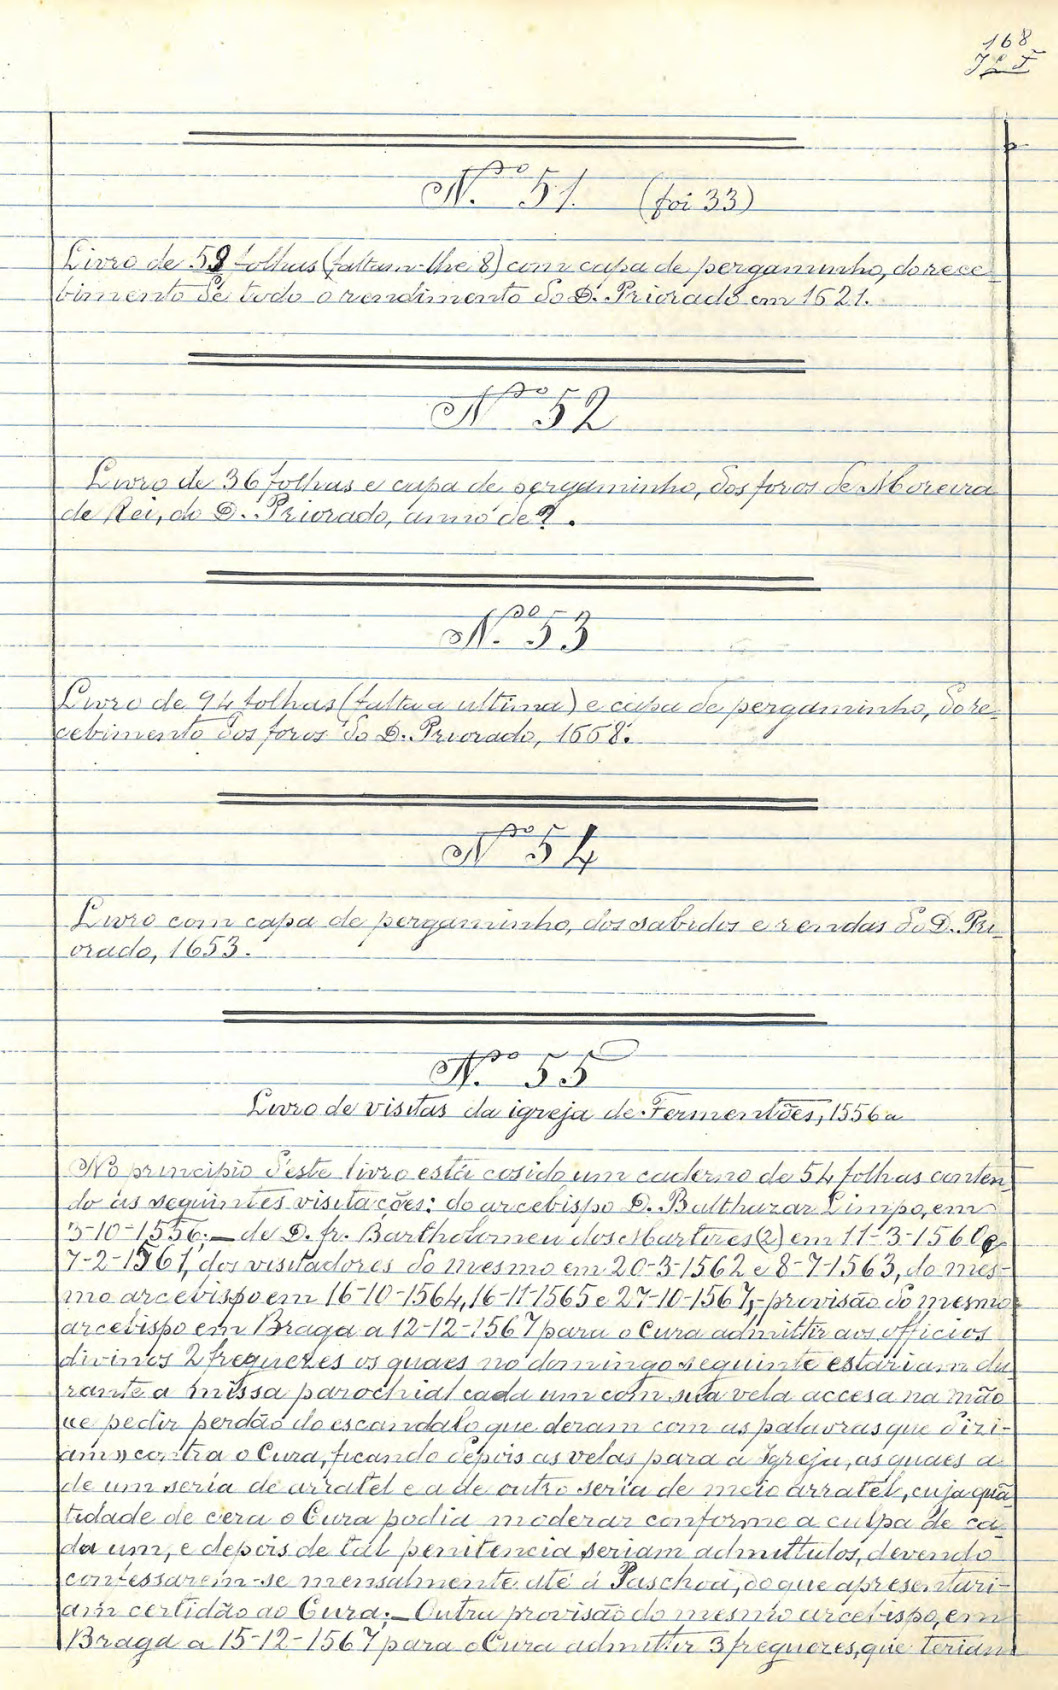 168
N.º 51 (foi 33)
Livro de 59 folhas (faltam-lhe 8) com capa de pergaminho, do rece-
bimento de todo o rendimento do D. Priorado em 1621.
Nº 52
Livro de 36 folhas e capa de pergaminho, dos foros de Moreira
de Rei, do D. Priorado, anno de ? .
N.º 53
Livro de 94 folhas (falta a ultima) e capa de pergaminho, do re-
cebimento dos foros do D. Priorado, 1658.
Nº 54
Livro com capa de pergaminho, dos sabidos e rendas do D. Pri-
orado, 1653.
N.º 55
Livro de visitas da igreja de Fermentões, 1556 a
No principio d'este livro está cosido um caderno de 54 folhas conten-
do as seguintes visitações: do arcebispo D. Balthazar Limpo, em
3-10-1556; — de D. fr. Bartholomeu dos Martires (2) em 11-3-1560 e
7-2-1561, dos visitadores do mesmo em 20-3-1562 e 8-7-1563, do mes-
mo arcebispo em 16-10-1564, 16-11-1565 e 27-10-1567; - provisão do mesmo
arcebispo em Braga a 12-12-1567 para o Cura admittir aos officios
divinos 2 freguezes os quaes no domingo seguinte estariam du-
rante a missa parochial cada um com sua vela accesa na mão
"e pedir perdão do escandalo que deram com as palavras que diri-
am" contra o Cura, ficando depois as velas para a Igreja, as quaes a
de um seria de arratel e a de outro seria de meio arratel, cuja quã
tidade de cera o Cura podia moderar conforme a culpa de ca-
da um, e depois de tal penitencia seriam admittidos, devendo
confessarem-se mensalmente até á Paschoa, do que apresentari-
am certidão ao Cura; — Outra provisão do mesmo arcebispo, em
Braga a 15-12-1567 para o Cura admittir 3 freguezes, que teriam